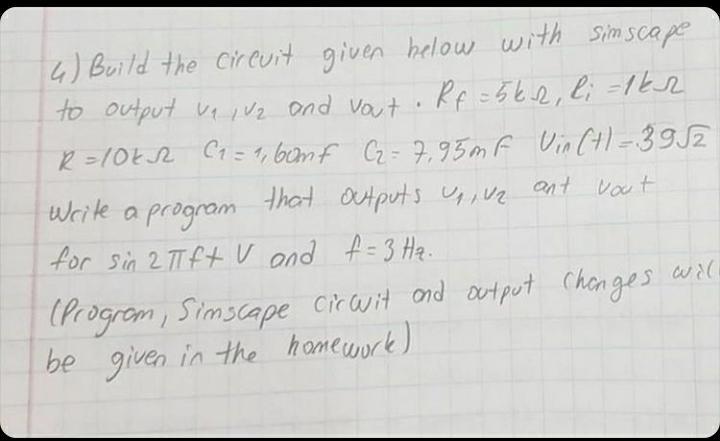 4) Build the circuit given below with simscape
to output v1, v2 and vout. Rf = 5kΩ, Ri = 1kΩ
R = 10kΩ C1 = 1,60mF C2 = 7,95mF Vin(t) = 39√2
Write a program that outputs v1, v2 ant vout
for sin 2πft V and f = 3 Hz.
(Program, Simscape circuit and output changes will
be given in the homework)